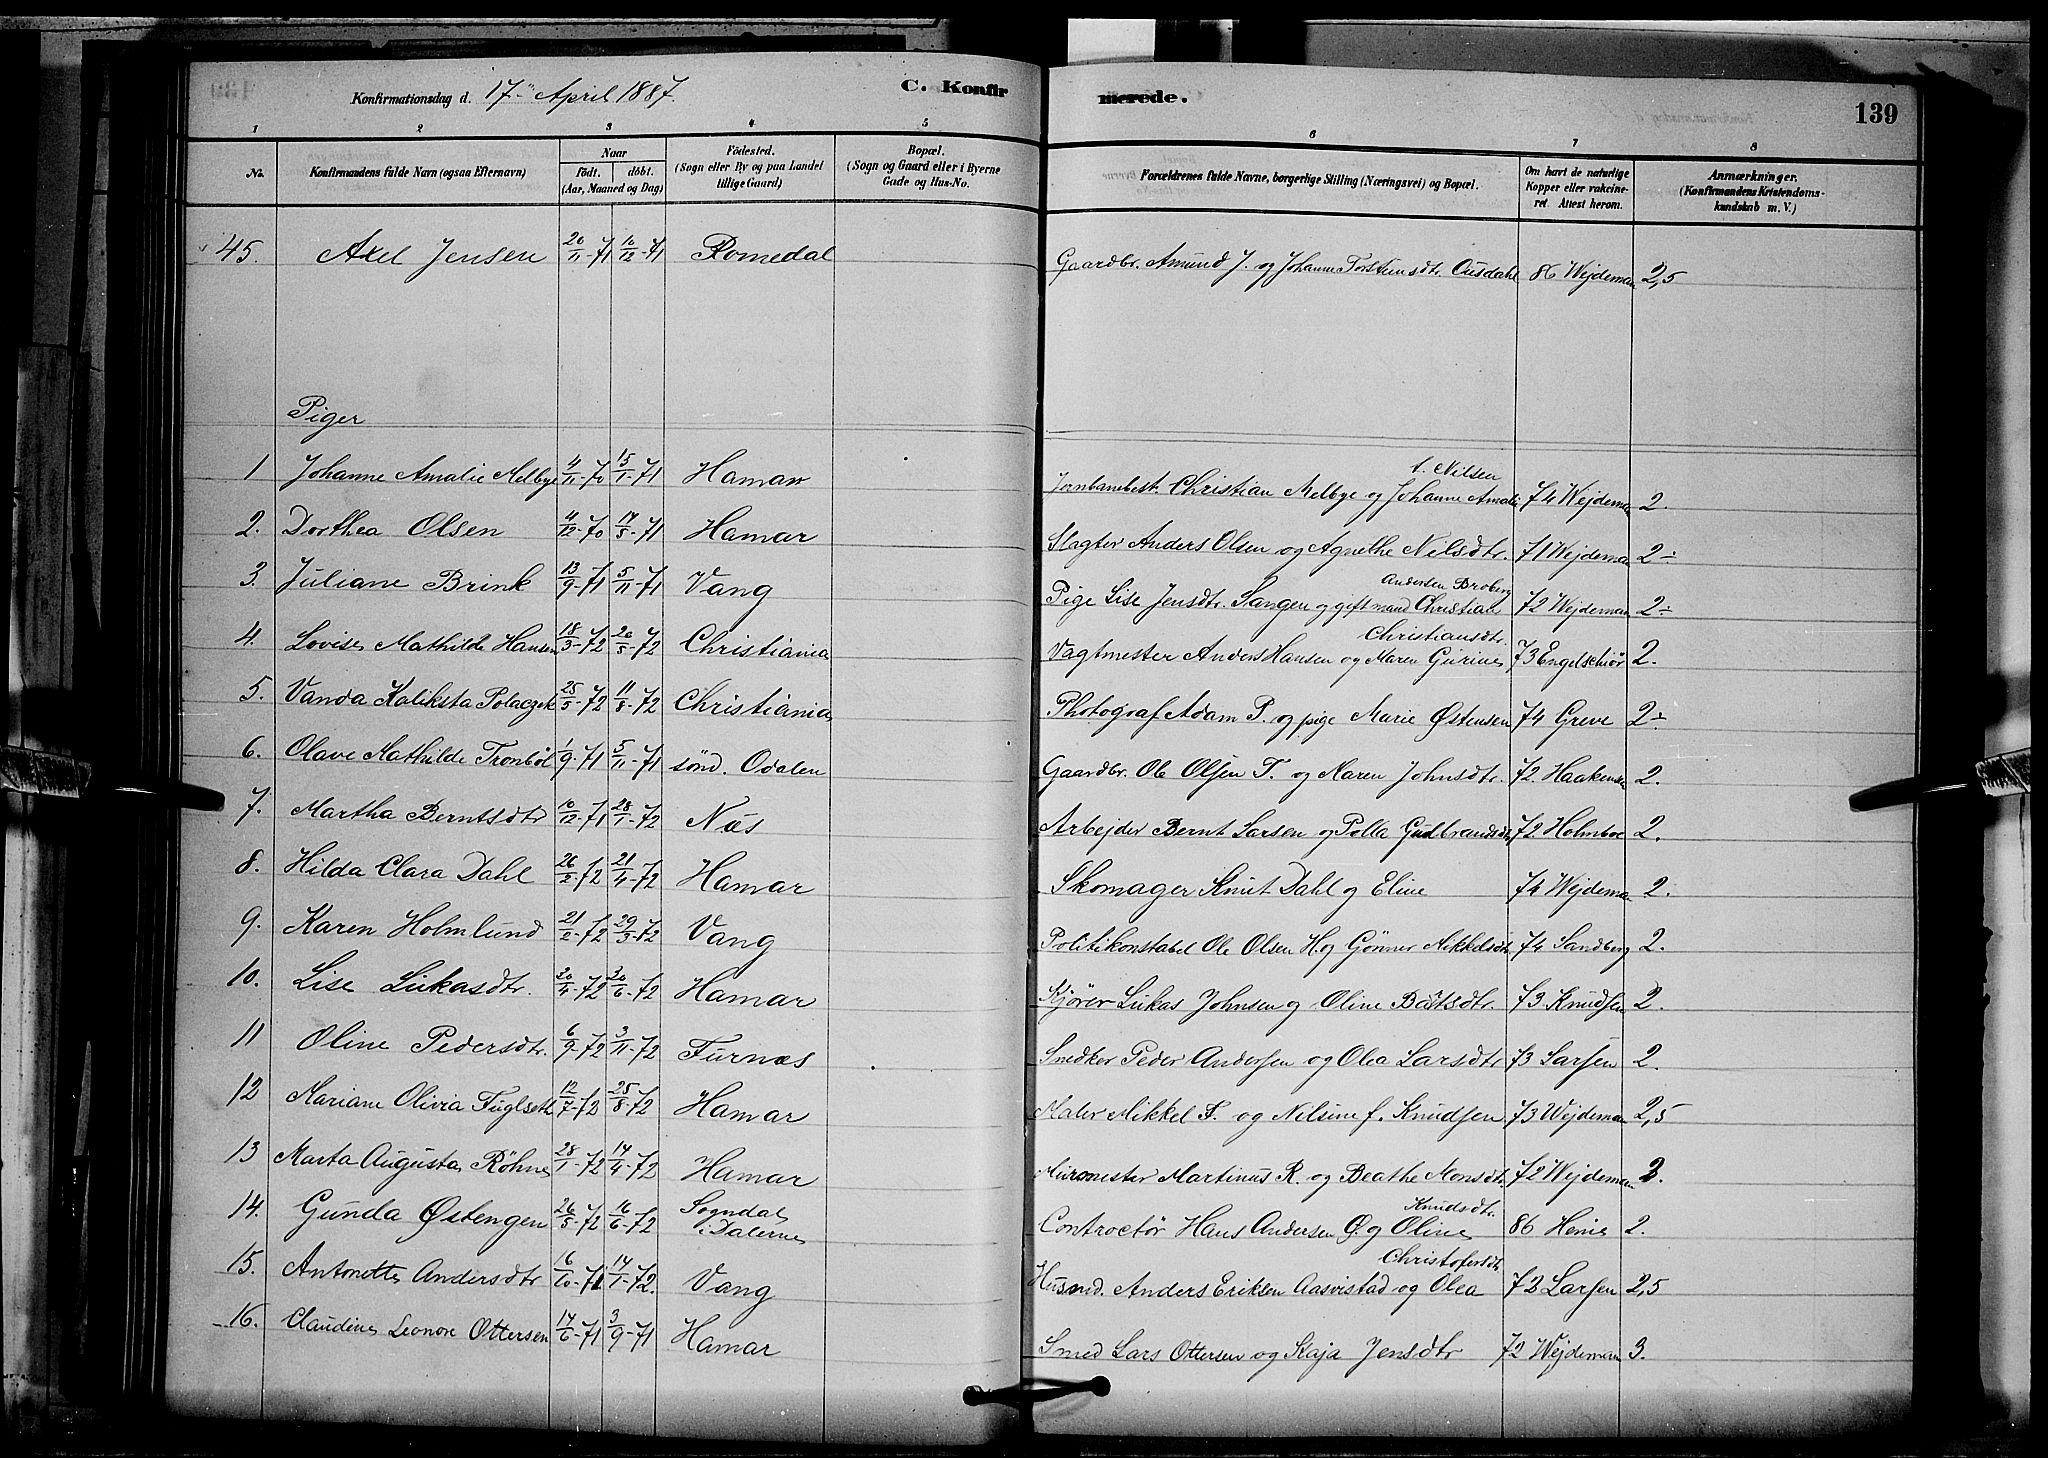 Konfirmationsdag d. 17 April 1887. C. Konfirmerede. 139
1 2 3 4 5 6 7 8
No. Konfirmandens fulde Navn (ogsaa Efternavn) Naar født. døbt. (Aar, Maaned og Dag) Fødested. (Sogn eller By og paa Landet tillige Gaard) Bopæl. (Sogn og Gaard eller i Byerne Gade og Hus-No. Forældrenes fulde Navne, borgerlige Stilling (Næringsvei) og Bopæl. Om havt de naturlige Kopper eller vakcineret. Attest herom. Anmærkninger. (Konfirmandens Kristendomskundskab m. V.)
45. Axel Jensen 20/11-71 10/12-71 Romedal Gaardbr. Amund J. og Johanne Torstensdtr. Ousdahl 86 Wejdeman 2,5
Piger
1 Johanne Amalie Melbye 4/11-70 15/1-71 Hamar Jernbanebest. Christian Melbye og Johanne Amalie f. Nilsen 74 Wejdeman 2.
2. Dorthea Olsen 4/12-70 14/5-71 Hamar Slagter Anders Olsen og Agnethe Nilsdtr. 71 Wejdeman 2÷
3. Juliane Brink 13/9-71 5/11-71 Vang Pige Lise Jensdtr. Sangen og gift mand Christian Andersen Broberg 72 Wejdeman 2÷
4. Lovise Mathilde Hansen 18/3-72 20/5-72 Christiania Vagtmester Anders Hansen og Maren Gurine Christiansdtr. 73 Engelschiør 2.
5. Vanda Kaliksta Polaczek 25/5-72 11/8-72 Christiania Photograf Adam P. og pige Marie Østensen 74 Greve 2÷
6. Olave Mathilde Tronbøl 1/9-71 5/11-71 sønd. Odalen Gaardbr. Ole Olsen T. og Maren Johnsdtr. 72 Haakensen 2.
7. Martha Berntsdtr 10/12-71 28/1-72 Næs Arbejder Bernt Larsen og Polla Gudbrandsdtr 72 Holmboe 2.
8. Hilda Clara Dahl 26/2-72 21/4-72 Hamar Skomager Knut Dahl og Eline 74 Wejdeman 2.
9. Karen Holmlund 21/2-72 29/3-72 Vang Politikonstabel Ole Olsen H. og Gønner Mikkelsdtr 74 Sandberg 2.
10. Lise Lukasdtr. 20/4-72 30/6-72 Hamar Kjører Lukas Johnsen og Oline 73 Knudsen 2.
11 Oline Pedersdtr. 6/9-72 3/11-72 Furnæs Snedker Peder Andersen og Olea Larsdtr 73 Larsen 2.
12 Mariane Olivia Fuglseth 12/7-72 25/8-72 Hamar Maler Mikkel F. og Nilsine f. Knudsen 73 Wejdeman 2,5
13 Marta Augusta Røhne 28/1-72 14/4-72 Hamar Murmester Martinus R. og Beathe Monsdtr. 72 Wejdeman
14. Gunda Østengen 26/5-72 16/6-72 Sogndal i Dalerne Controctør Hans Andersen Ø. og Oline Knudsdtr. 86 Henie 2.
15. Antonette Andersdtr 6/10-71 14/1-72. Vang Husmd. Anders Eriksen Aasvistad og Olea Christofersdtr 72 Larsen 2,5
16. Claudine Leonore Ottersen 17/6-71 3/9-71 Hamar Smed Lars Ottersen og Kaja Jensdtr 72 Wejdeman 3.